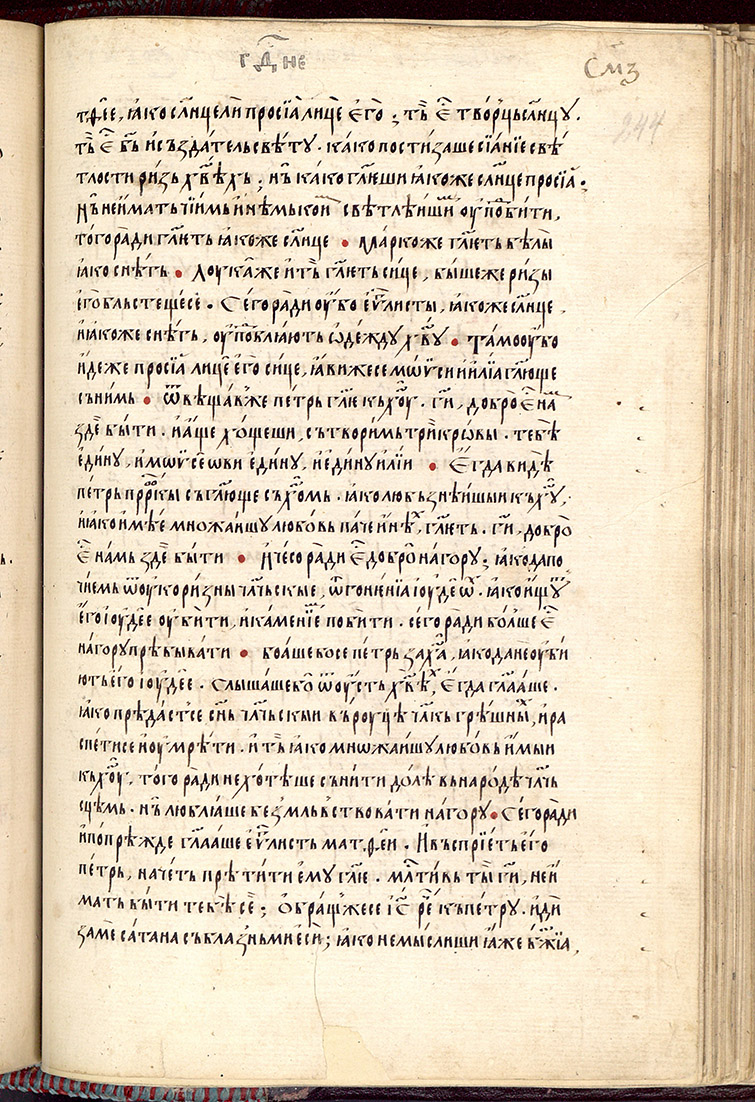 г҃ д҇, не
см҃з
244
тѳее, ꙗко слн҃це ли просїа̀ лицѐ его̀; тъ̀ е҆́ творць́ слн҃цу.
тъ̀ е҆́ бо̀ и създа́тель свѣ́ту. ка́ко пости́заше сїа́нїе свѣ́
тлости ри́зь хв҃ѣхь; нь̀ ка́ко гл҃ѥши ꙗ҆́коже слн҃це просїа̀.
Нь̀ не и҆́мать чїи́мь и҆ нѣ́мыкой свѣтлѣ́йшїи о҆упо́бити,
того̀ ра́ди гл҃ѥть ꙗ҆́коже слн҃це • Ма́ркоже гл҃ѥть бѣлы
ꙗ҆́ко снѣ́гь • Лоука́же и҆ тъ̀ гл҃ѥть си́це, выше́же ри́зы
е҆го̀ бльстеще́се. Сего̀ ра́ди о҆у́бо еѵ҃листы, ꙗ҆́коже слн҃це,
и҆ ꙗ҆́коже снѣ́гь, о҆упо́блꙗють ѡ҆де́жду хв҃у • Та́мо о҆у́бо
и҆де́же просїа̀ лицѐ е҆го̀ си́це, ꙗ҆ви́жесе мѡѵ҆си и҆ и҆лїа̀ гл҃юще
съ ни́мь • Ѿвѣща́вже пе́трь гл҃ѥ къ хо҃у. ги҃, добро̀ е҆́ на́
здѐ бы́ти. и҆ а҆́ще хо́щеши, сътвори́мь трѝ кро́вы. тебѣ̀
е҆ди́ну, и҆ мѡѵ҆сеѡви е҆ди́ну, и҆ е҆ди́ну и҆лїи • Е҆гда̀ ви́дѣ
пе́трь прр҃кы съ гл҃юще съ хо҃мь. ꙗ҆́ко любьзнѣ́йшыи къ хо҃у,
и҆ ꙗ҆́ко и҆мѣ́е мно́жайшу любо́вь па́че и҆нѣ́х, гл҃ѥть. ги҃, добро̀
е҆́ на́мь здѐ бы́ти • И҆ чесо̀ ра́ди е҆́ добро̀ на го́ру; ꙗ҆́ко да по
чне́мь ѿ о҆уко́ризны чл҃чьскые, ѿ гоне́нїа і҆оуде́ѡ. ꙗ҆́ко и҆́щу
е҆го̀ і҆оуде́е о҆уби́ти, и҆ ка́менїе поби́ти. сего̀ ра́ди бо́лше е҆́
на го́ру прѣбыва́ти • боа́шебосе пе́трь за ха҃, ꙗ҆́ко да не о҆убїи
ють е҆го̀ і҆оуде́е. Слы́шаше бо̀ ѿ о҆у́сть хв҃ѣх, е҆гда̀ гл҃аше.
ꙗ҆́ко прѣда́стсе сн҃ь чл҃чьскыи въ ро́уцѣ чл҃кь грѣ́шных, и҆ ра
спе́тисе и҆ о҆умрѣ́ти. и҆ тъ̀ ꙗ҆́ко мнѡ́жайшу любо́вь и҆мы́и
къ хо҃у, того̀ ра́ди не хо́тѣше съни́ти до́лѣ вь наро́дѣ чл҃чь
сцѣмь. нь̀ люблꙗ́ше безмльвствова́ти на го́ру • Сего̀ ра́ди
и҆ попрѣ́жде гл҃а́аше еѵ҃листь матѳе́и. И҆ въспрїе́ть е҆го̀
пе́трь, наче́ть прѣти́ти е҆му̀ гл҃ѥ. млⷭ҇тивь ты̀ ги҃, не и҆
мать бы́ти тебѣ̀ се̏; О҆бра́щжесе і҆с҃ ре҃ къ пе́тру. и҆дѝ
за ме̏ са́тана съблазнь́ мѝ е҆сѝ; ꙗ҆́ко не мы́слиши ꙗ҆́же бж҃їа,